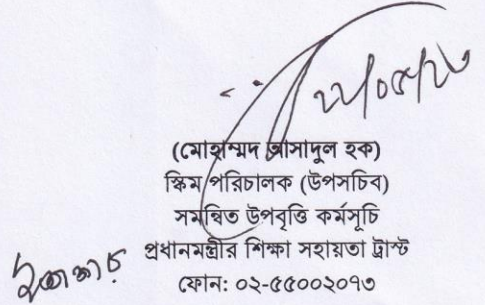 ২২/০৫/২৩
(মোহাম্মদ আসাদুল হক)
স্কিম পরিচালক (উপসচিব)
সমন্বিত উপবৃত্তি কর্মসূচি
প্রধানমন্ত্রীর শিক্ষা সহায়তা ট্রাস্ট
ফোন: ০২-৫৫০০২০৭৩